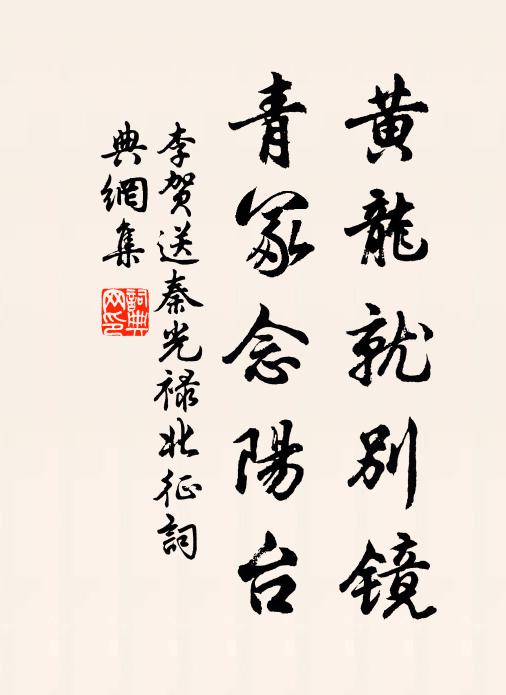 黄龍就别镜
青冢念陽台
李贺送秦光禄北征詞
典網集
詞典
网印